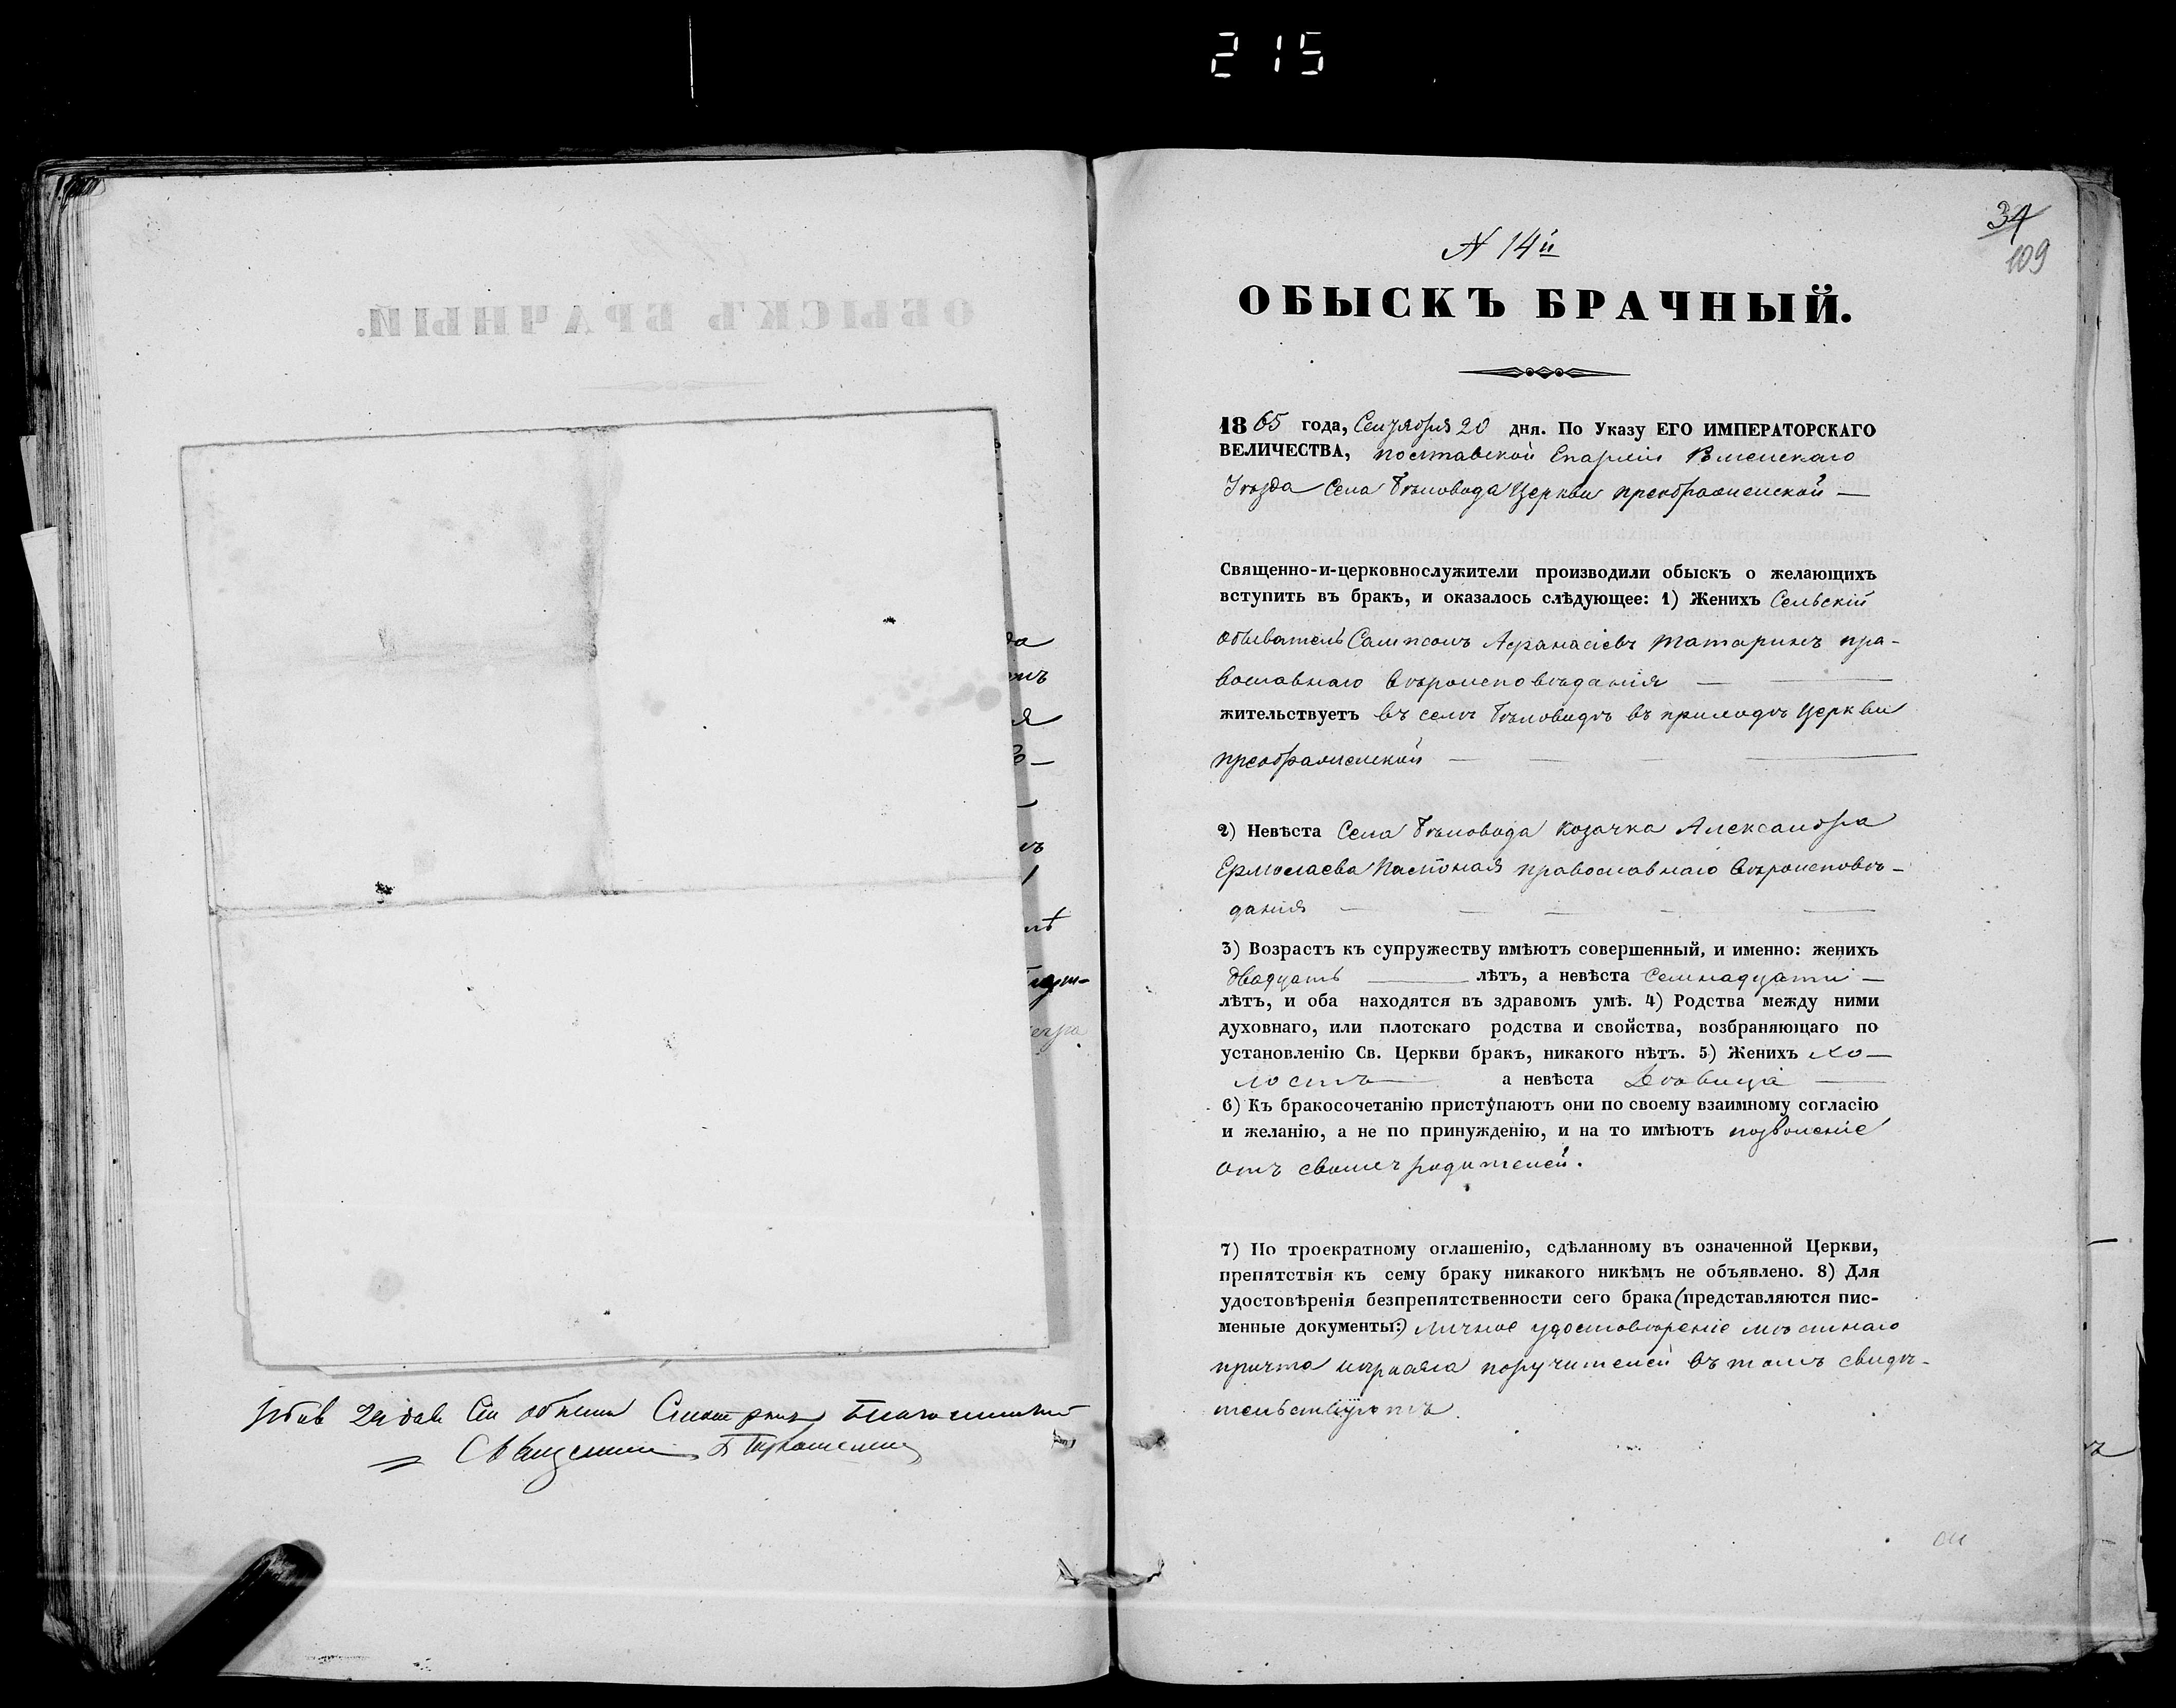 215
34
109
N 14й
ОБЫСКЪ БРАЧНЫЙ.
1865 года, Сентября 20 дня. По Указу ЕГО ИМПЕРАТОРСКАГО
ВЕЛИЧЕСТВА, полтавской Епархіи Зменскаго
Уѣзда Села Бѣловода Церкви преображенской —
Священно-и-церковнослужители производили обыскъ о желающихъ
вступить въ бракъ, и оказалось слѣдующее: 1) Женихъ Сельскій
обыватель Сампсонъ Афанасіевъ Татаринъ пра-
вославнаго вѣроисповѣданія —
жительствуетъ въ селѣ Бѣловодѣ въ приходѣ Церкви
преображенской —
2) Невѣста Села Бѣловода козачка Александра
Ермолаева православнаго вѣроисповѣ-
данія —
3) Возрастъ къ супружеству имѣютъ совершенный, и именно: женихъ
двадцать — лѣтъ, а невѣста семнадцати —
лѣтъ, и оба находятся въ здравомъ умѣ. 4) Родства между ними
духовнаго, или плотскаго родства и свойства, возбраняющаго по
установленію Св. Церкви бракъ, никакого нѣтъ. 5) Женихъ хо-
лостъ — а невѣста Дѣвица —
6) Къ бракосочетанію приступаютъ они по своему взаимному согласію
и желанію, а не по принужденію, и на то имѣютъ позволеніе
отъ своихъ родителей.
7) По троекратному оглашенію, сдѣланному въ означенной Церкви,
препятствія къ сему браку никакого никѣмъ не объявлено. 8) Для
удостовѣренія безпрепятственности сего брака (представляются пис-
менные документы:) личное удостовѣреніе мѣстнаго
причта поручителей въ томъ свидѣ-
тельствуютъ.